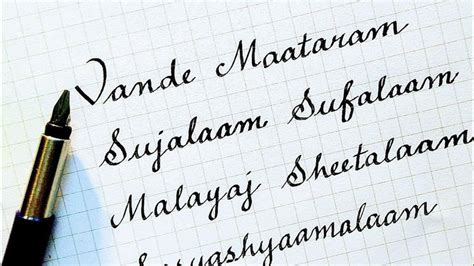 Vande Maataram
Sujalaam Sufalaam
Malayaj Sheetalaam
Sasyashyaamalaam